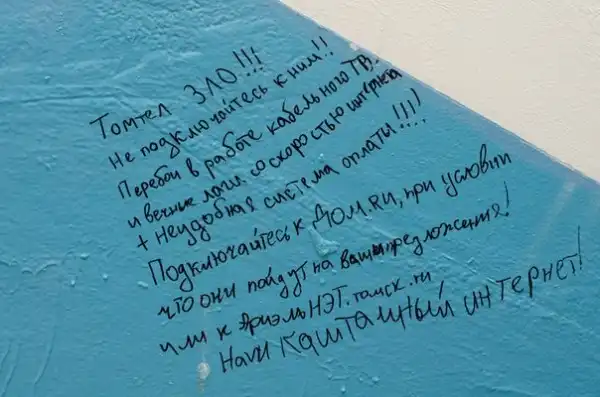 Томтел ЗЛО!!!
Не подключайтесь к ним!!
Перебои в работе кабельного ТВ.
и вечные лаги со скоростью интернета
+ Неудобная система оплаты!!!!)
Подключайтесь к Дом.RU, при условии
что они пойдут на ваши предложения!
или к АриэльНЭТ.томск.ru
Наш Каштачный интернет!